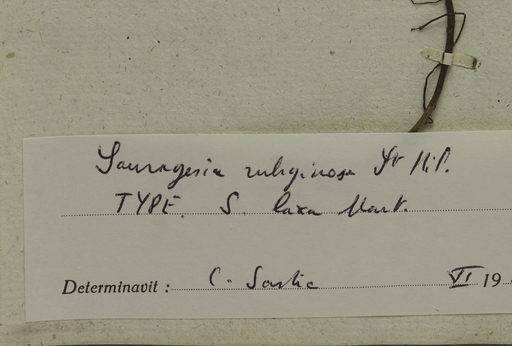 Sauvagesia rubiginosa St Hil.
TYPE. S. laxa Mart.
Determinavit : C. Sastre VI 19